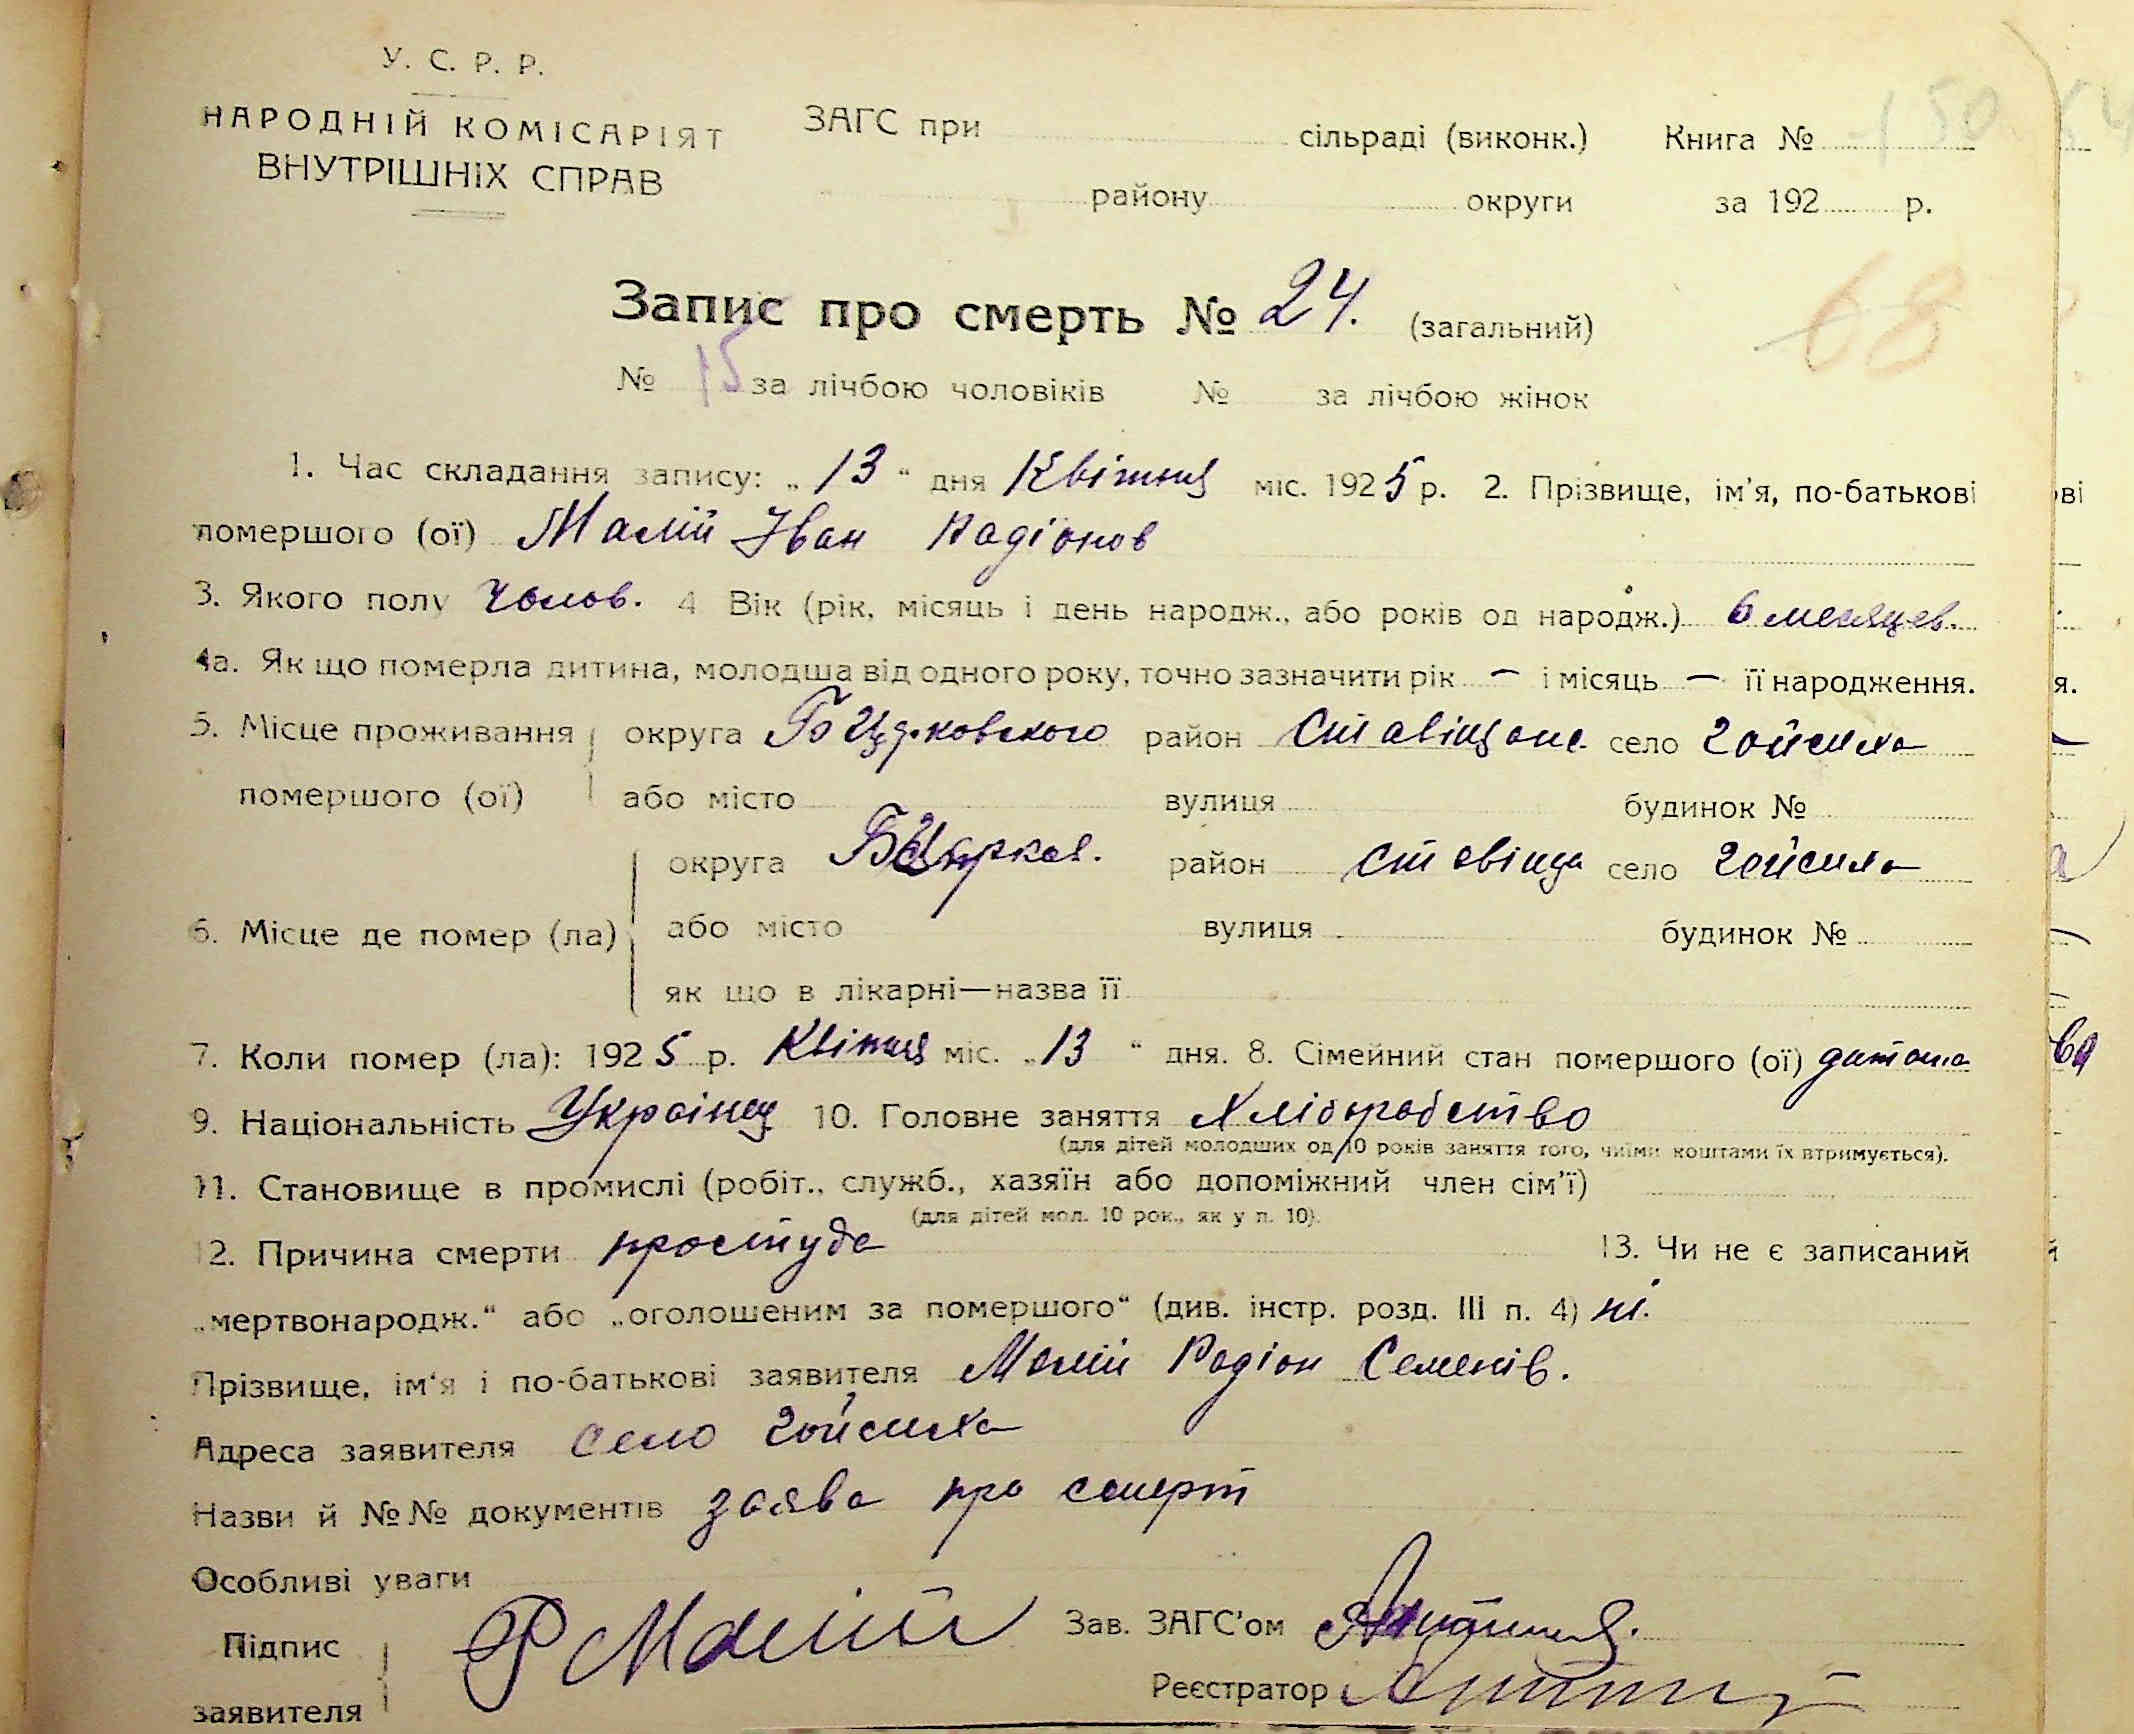 У. С. Р. Р.
НАРОДНІЙ КОМІСАРІЯТ
ВНУТРІШНІХ СПРАВ
ЗАГС при сільраді (виконк.) Книга № 150
району округи за 192 р.
68
Запис про смерть № 24. (загальний)
№ 15 за лічбою чоловіків № за лічбою жінок
1. Час складання запису: „13“ дня Квітня міс. 1925 р. 2. Прізвище, ім'я, по-батькові
помершого (ої) Малій Іван Радіонов
3. Якого полу чолов. 4 Вік (рік, місяць і день народж., або років од народж.) 6 месяцев.
4а. Як що померла дитина, молодша від одного року, точно зазначити рік — і місяць — її народження.
5. Місце проживання округа БЦерковского район Ставіщанс. село Гойсиха
помершого (ої) або місто вулиця будинок №
округа район Ставіща село Гойсиха
6. Місце де помер (ла) або місто вулиця будинок №
як що в лікарні—назва її
7. Коли помер (ла): 1925 р. Квітня міс. „13“ дня. 8. Сімейний стан помершого (ої) дитина
9. Національність Українец 10. Головне заняття Хліборобство
(для дітей молодших од 10 років заняття того, чиїми коштами їх втримується).
11. Становище в промислі (робіт., служб., хазяїн або допоміжний член сім'ї)
(для дітей мол. 10 рок., як у п. 10).
12. Причина смерти простуда 13. Чи не є записаний
„мертвонародж.“ або „оголошеним за помершого“ (див. інстр. розд. III п. 4) ні.
Прізвище, ім'я і по-батькові заявителя Малій Радіон Семенів.
Адреса заявителя село Гойсиха
Назви й №№ документів заява про смерт
Особливі уваги
Підпис
заявителя Р Малій
Зав. ЗАГС'ом
Реєстратор